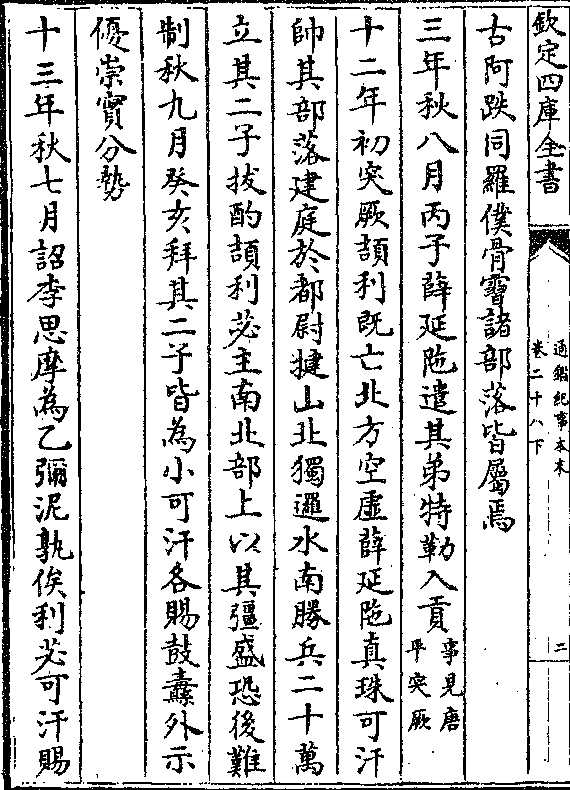 欽定四庫全書
通鑑紀事本末
卷二十八下
二
古阿跌同羅僕骨霫諸部落皆屬焉
三年秋八月丙子薛延陁遣其弟特勒入貢事見唐平突厥
十二年初突厥頡利既亡北方空虛薛延陁真珠可汗
帥其部落建庭於都尉揵山北獨邏水南勝兵二十萬
立其二子拔酌頡利苾主南北部上以其彊盛恐後難
制秋九月癸亥拜其二子皆為小可汗各賜鼓纛外示
優崇實分勢
十三年秋七月詔李思摩為乙彌泥孰俟利苾可汗賜